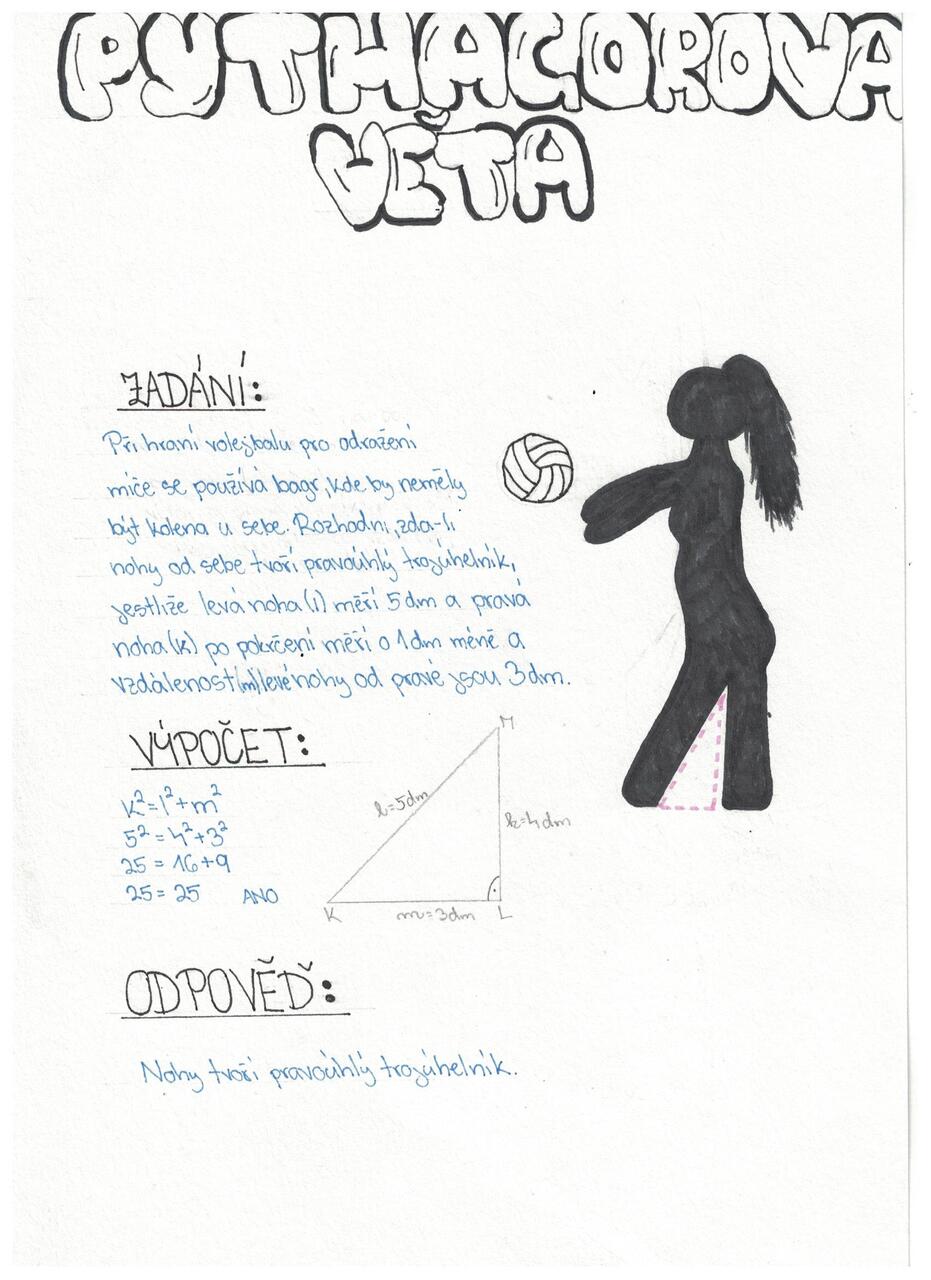 PYTHAGOROVA
VĚTA
ZADÁNÍ:
Při hraní volejbalu pro odražení
míče se používá bagr, kde by neměly
být kolena u sebe. Rozhodni, zda-li
nohy od sebe tvoří pravoúhlý trojúhelník,
jestliže levá noha (l) měří 5 dm a pravá
noha (k) po pokrčení měří o 1dm méně a
vzdálenost (m) levé nohy od pravé jsou 3dm.
VÝPOČET:
k²=l²+m²
5²=4²+3²
25=16+9
25=25 ANO
M
l=5dm
k=4dm
K m=3dm L
ODPOVĚĎ:
Nohy tvoří pravoúhlý trojúhelník.